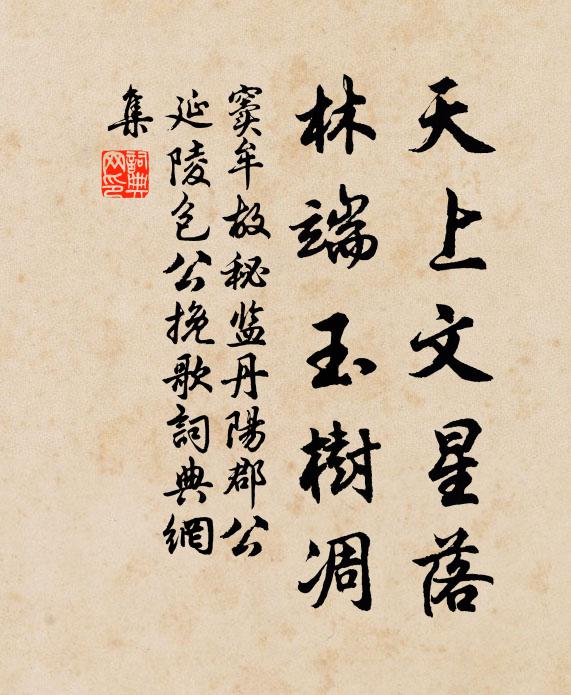 天上文星落
林端玉樹凋
竇牟故秘监丹陽郡公
延陵包公挽歌詞典網
集
詞典網印